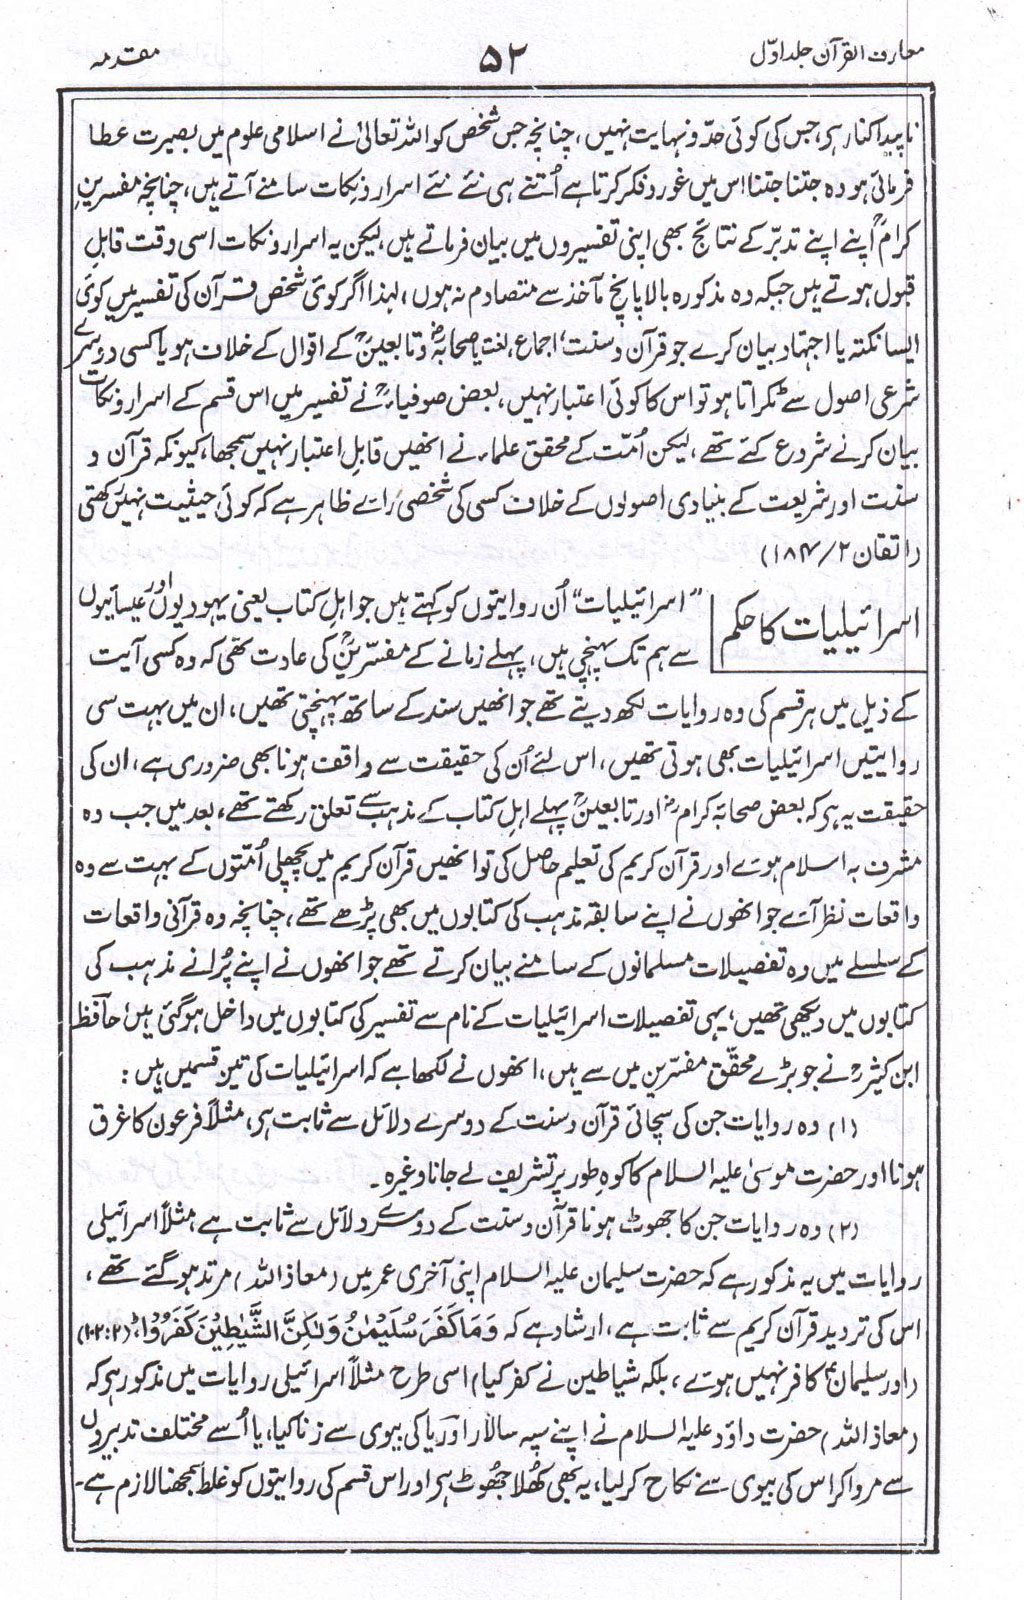 معارف القرآن جلد اوّل
۵۲
مقدمہ
ناپیدا کنار ہی، جس کی کوئی حدّ و نہایت نہیں، چنانچہ جس شخص کو اللہ تعالیٰ نے اسلامی علوم میں بصیرت عطا
فرمائی ہو وہ جتنا جتنا اس میں غور و فکر کرتا ہے اُتنے ہی نئے نئے اسرار و نکات سامنے آتے ہیں، چنانچہ مفسرینِ
کرامؒ اپنے اپنے تدبّر کے نتائج بھی اپنی تفسیروں میں بیان فرماتے ہیں، لیکن یہ اسرار و نکات اسی وقت قابلِ
قبول ہوتے ہیں جبکہ وہ مذکورہ بالا پانچ مآخذ سے متصادم نہ ہوں، لہٰذا اگر کوئی شخص قرآن کی تفسیر میں کوئی
ایسا نکتہ یا اجتہاد بیان کرے جو قرآن و سنت، اجماع، لغت یا صحابہؓ و تابعینؒ کے اقوال کے خلاف ہو یا کسی دوسرے
شرعی اصول سے ٹکراتا ہو تو اس کا کوئی اعتبار نہیں، بعض صوفیاءؒ نے تفسیر میں اس قسم کے اسرار و نکات
بیان کرنے شروع کئے تھے، لیکن اُمّت کے محقق علماء نے انھیں قابلِ اعتبار نہیں سمجھا، کیونکہ قرآن و
سنت اور شریعت کے بنیادی اصولوں کے خلاف کسی کی شخصی رائے ظاہر ہے کہ کوئی حیثیت نہیں رکھتی
(اتقان ۲/۱۸۴)
اسرائیلیات کا حکم
"اسرائیلیات" اُن روایتوں کو کہتے ہیں جو اہلِ کتاب یعنی یہودیوں اور عیسائیوں
سے ہم تک پہنچی ہیں، پہلے زمانے کے مفسّرینؒ کی عادت تھی کہ وہ کسی آیت
کے ذیل میں ہر قسم کی وہ روایات لکھ دیتے تھے جو انھیں سند کے ساتھ پہنچتی تھیں، ان میں بہت سی
روایتیں اسرائیلیات بھی ہوتی تھیں، اس لئے اُن کی حقیقت سے واقف ہونا بھی ضروری ہے، ان کی
حقیقت یہ ہی کہ بعض صحابۂ کرامؓ اور تابعینؒ پہلے اہلِ کتاب کے مذہب سے تعلق رکھتے تھے، بعد میں جب وہ
مشرف بہ اسلام ہوئے اور قرآن کریم کی تعلیم حاصل کی تو انھیں قرآن کریم میں پچھلی اُمّتوں کے بہت سے وہ
واقعات نظر آئے جو انھوں نے اپنے سابقہ مذہب کی کتابوں میں بھی پڑھے تھے، چنانچہ وہ قرآنی واقعات
کے سلسلے میں وہ تفصیلات مسلمانوں کے سامنے بیان کرتے تھے جو انھوں نے اپنے پُرانے مذہب کی
کتابوں میں دیکھی تھیں، یہی تفصیلات اسرائیلیات کے نام سے تفسیر کی کتابوں میں داخل ہوگئی ہیں، حافظ
ابن کثیرؒ نے جو بڑے محقّق مفسّرین میں سے ہیں، انھوں نے لکھا ہے کہ اسرائیلیات کی تین قسمیں ہیں:
(۱) وہ روایات جن کی سچائی قرآن و سنت کے دوسرے دلائل سے ثابت ہی، مثلاً فرعون کا غرق
ہونا اور حضرت موسیٰ علیہ السلام کا کوہِ طور پر تشریف لے جانا وغیرہ۔
(۲) وہ روایات جن کا جھوٹ ہونا قرآن و سنت کے دوسرے دلائل سے ثابت ہے، مثلاً اسرائیلی
روایات میں یہ مذکور ہے کہ حضرت سلیمان علیہ السلام اپنی آخری عمر میں (معاذ اللہ) مرتد ہوگئے تھے،
اس کی تردید قرآن کریم سے ثابت ہے، ارشاد ہے کہ وَمَا كَفَرَ سُلَيْمٰنُ وَلٰكِنَّ الشَّيٰطِيْنَ كَفَرُوْا، (۲:۱۰۲)
(اور سلیمانؑ کافر نہیں ہوئے، بلکہ شیاطین نے کفر کیا) اسی طرح مثلاً اسرائیلی روایات میں مذکور ہی کہ
(معاذ اللہ) حضرت داؤد علیہ السلام نے اپنے سپہ سالار اوریا کی بیوی سے زنا کیا، یا اُسے مختلف تدبیروں
سے مروا کر اس کی بیوی سے نکاح کرلیا، یہ بھی کھُلا جھُوٹ ہی اور اس قسم کی روایتوں کو غلط سمجھنا لازم ہے۔